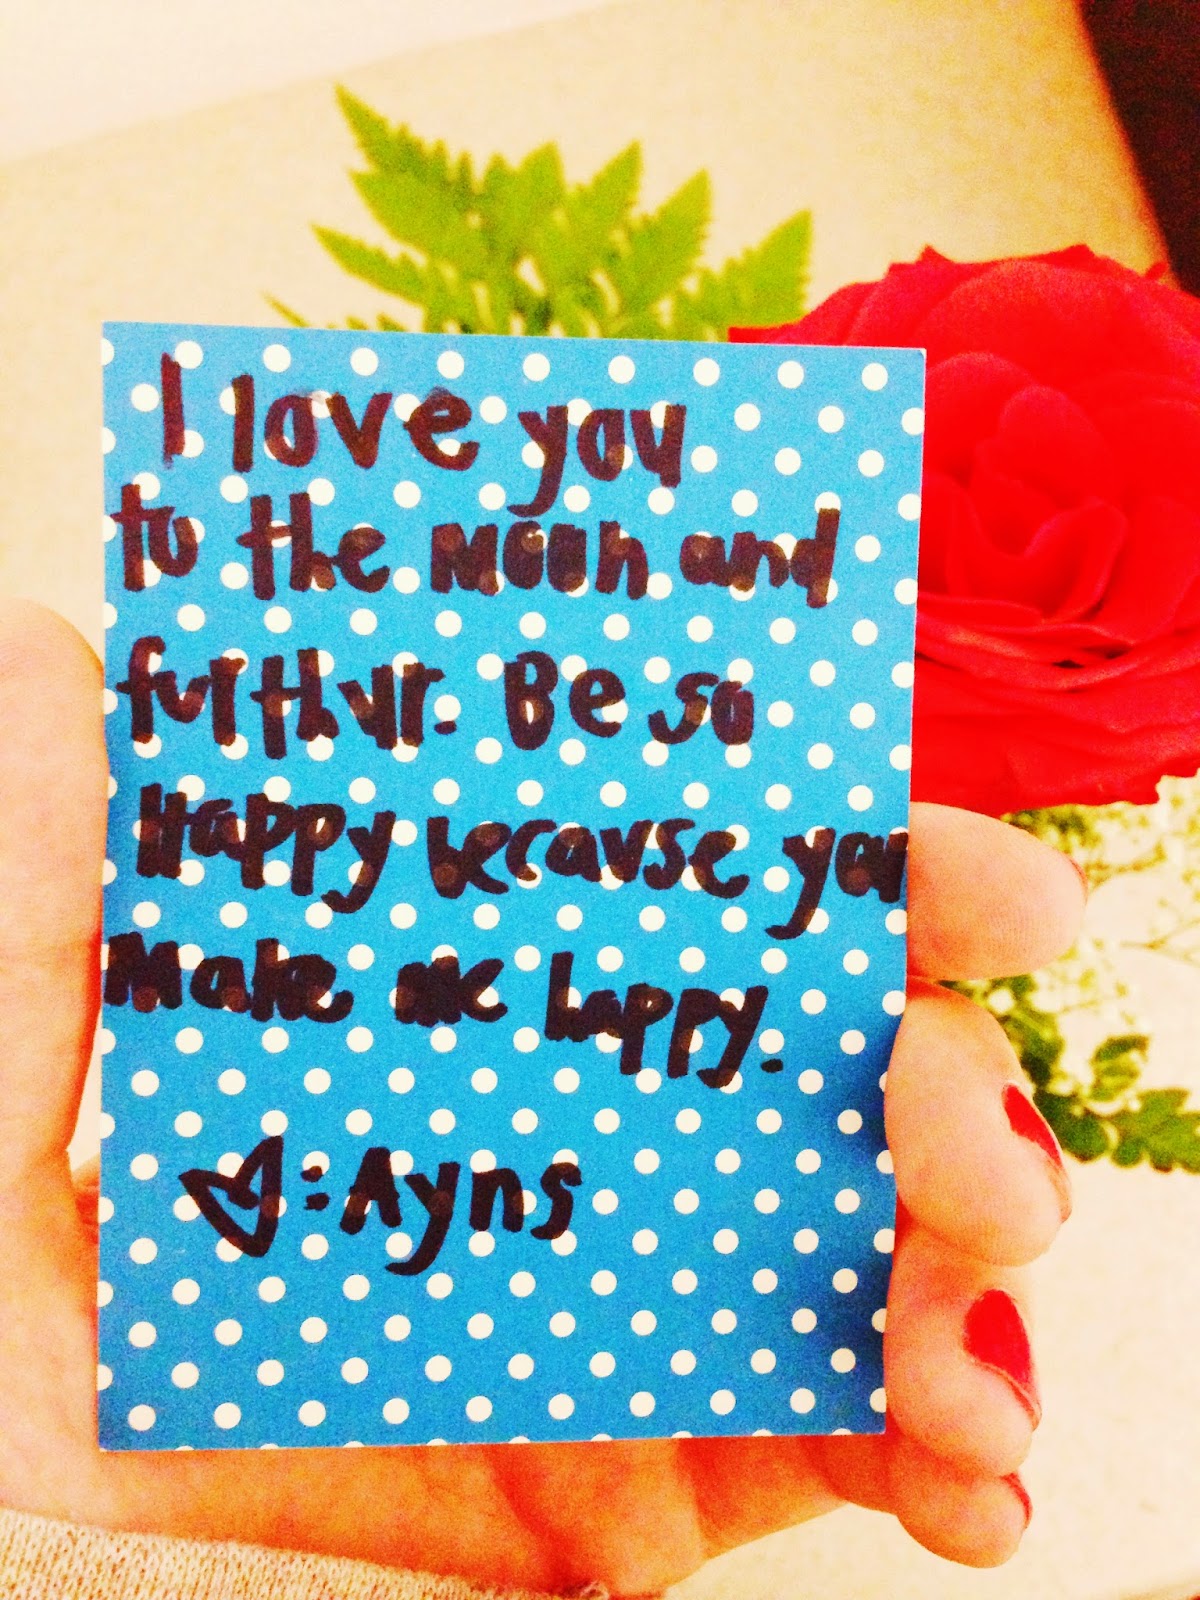 I love you
to the moon and
furthur. Be so
Happy because you
make me happy.
♡: Ayns